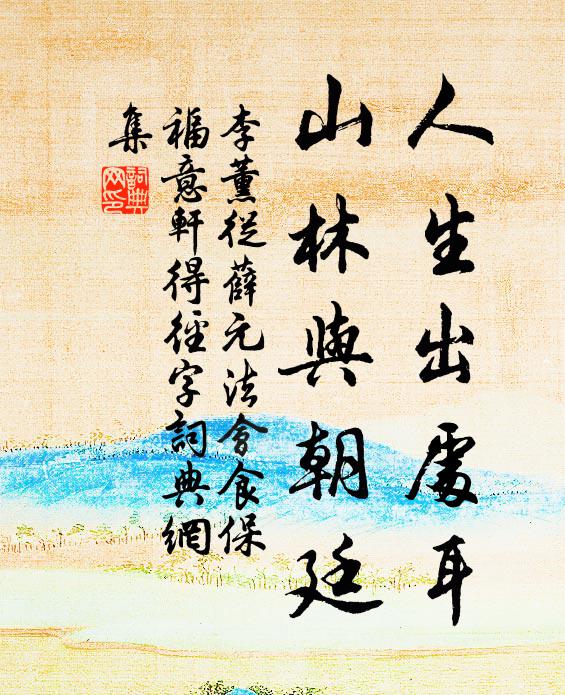 人生出處耳
山林與朝廷
李薰從薛元法會食保
福意軒得徑字詞典網
集
詞典
网印